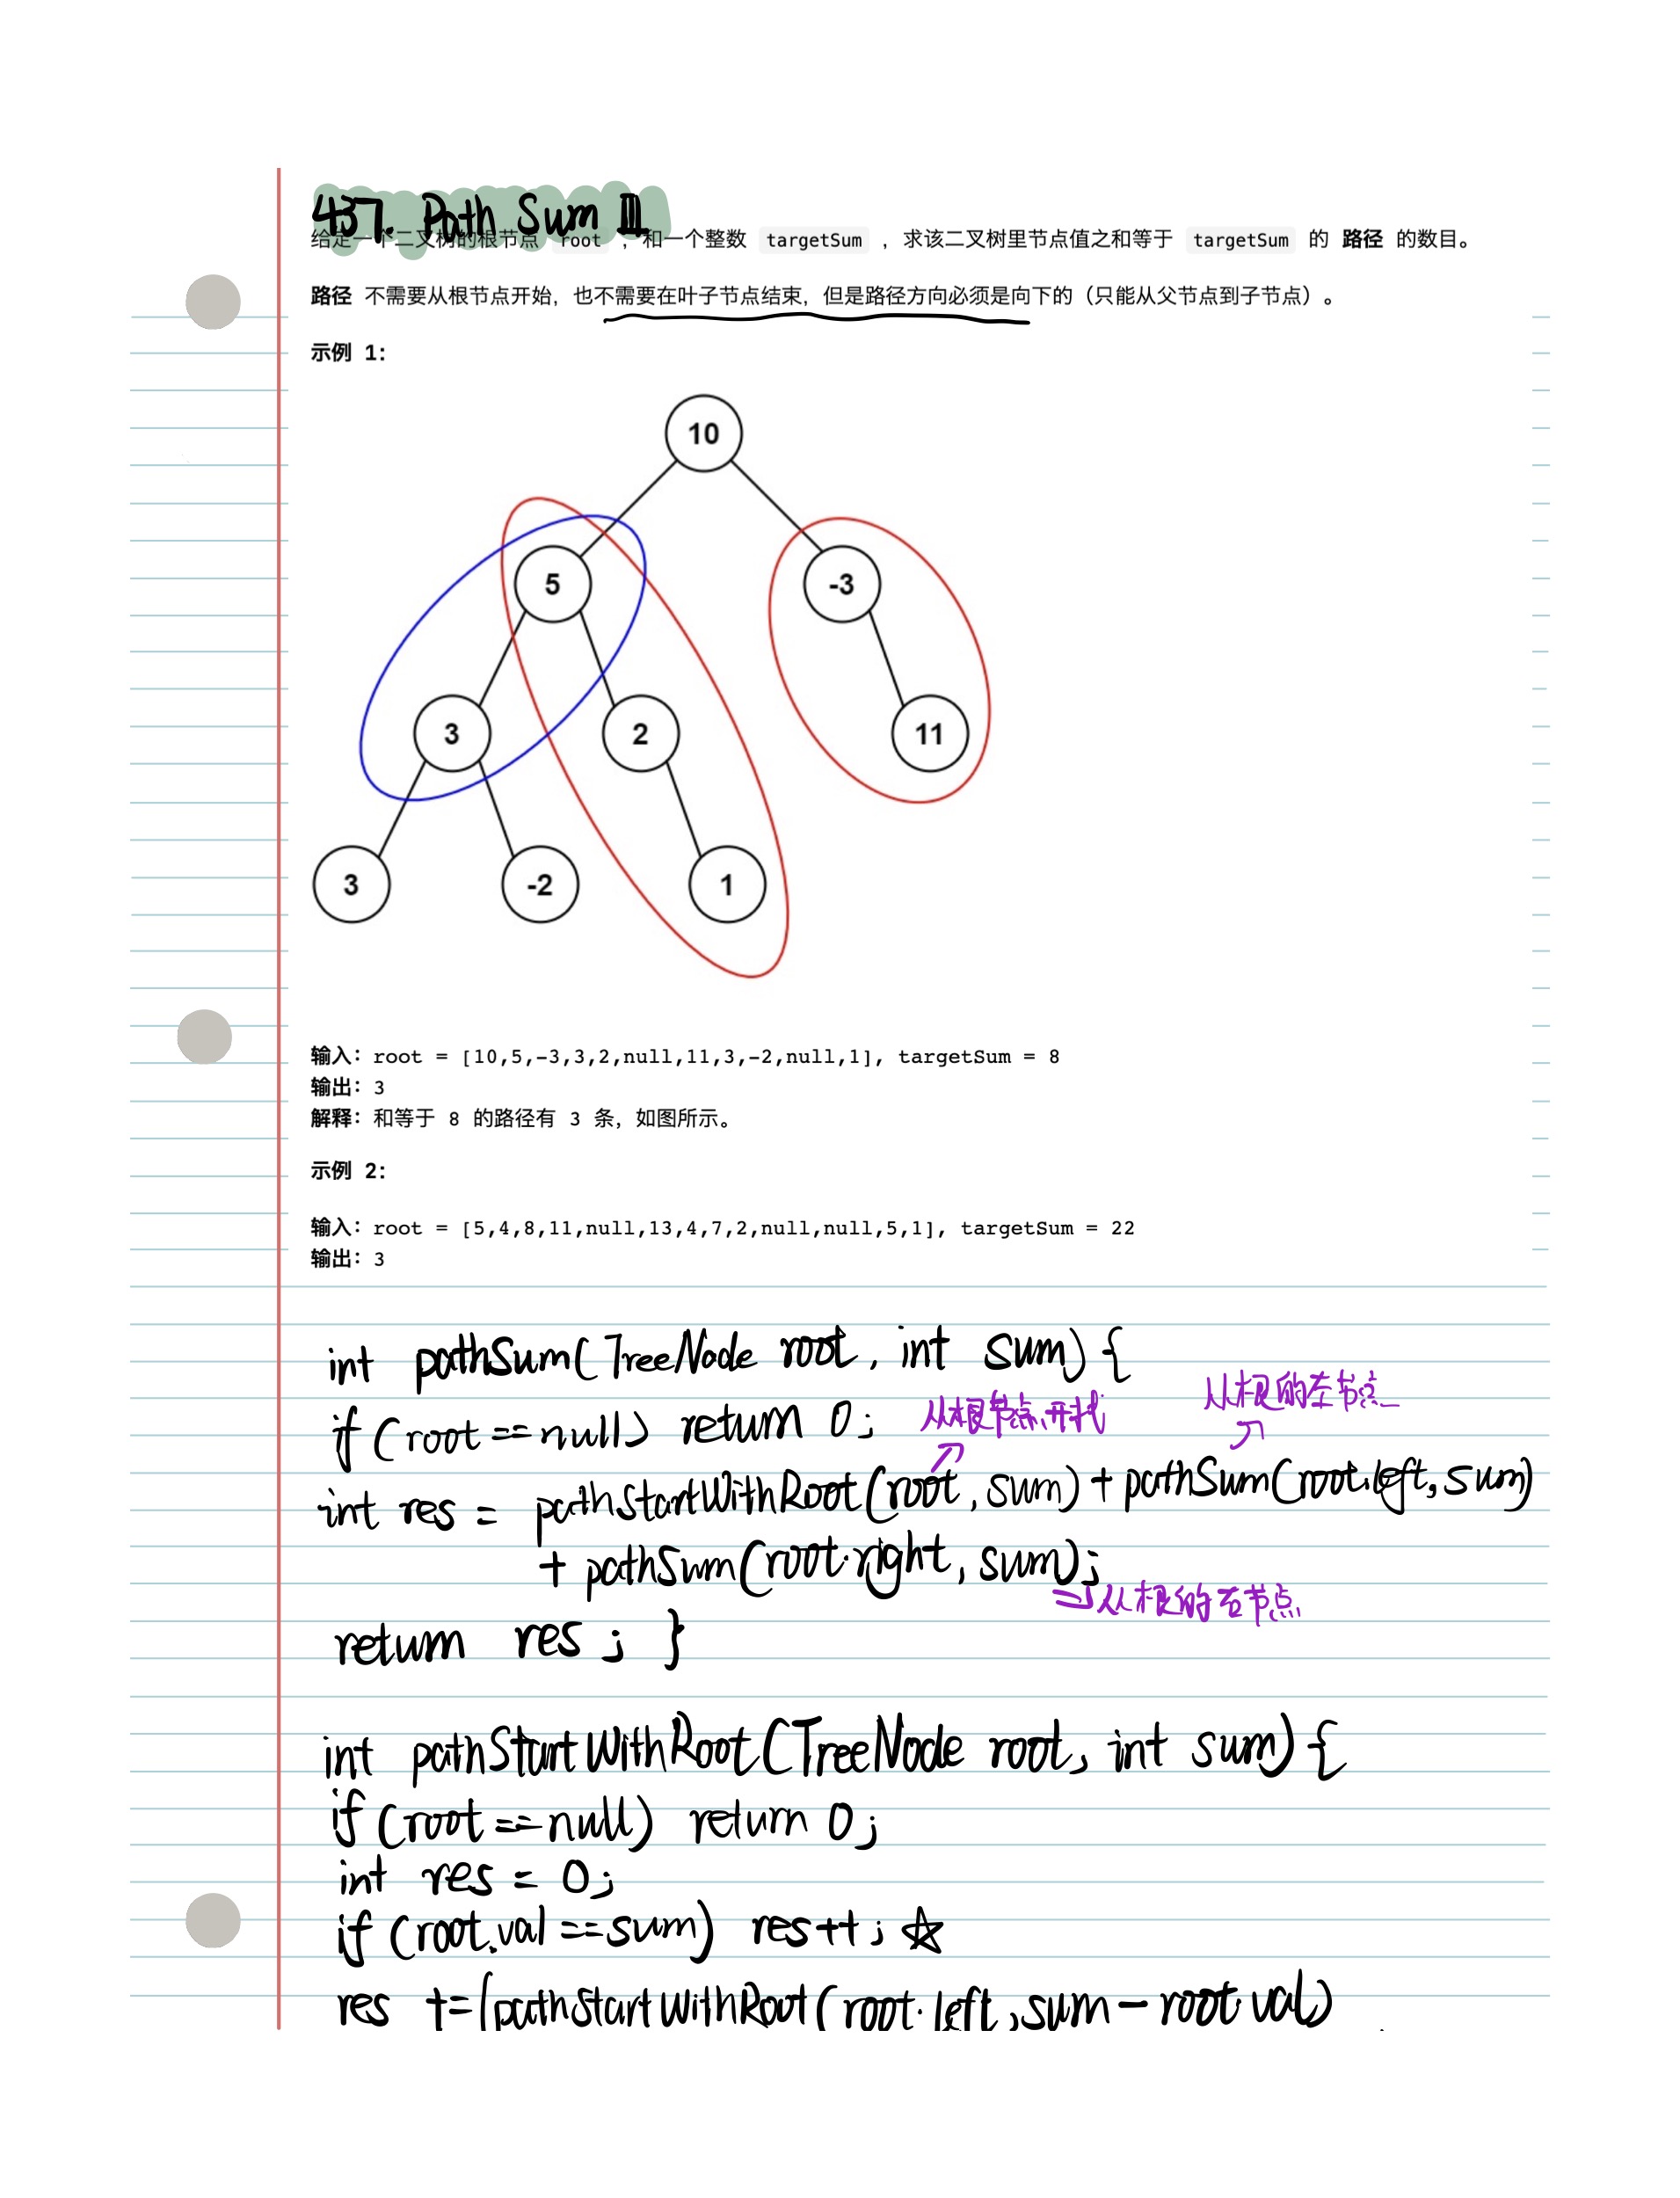 437. Path Sum III
给定一个二叉树的根节点 root ，和一个整数 targetSum ，求该二叉树里节点值之和等于 targetSum 的 路径 的数目。
路径 不需要从根节点开始，也不需要在叶子节点结束，但是路径方向必须是向下的（只能从父节点到子节点）。
示例 1：
10
5 -3
3 2 11
3 -2 1
输入：root = [10,5,-3,3,2,null,11,3,-2,null,1], targetSum = 8
输出：3
解释：和等于 8 的路径有 3 条，如图所示。
示例 2：
输入：root = [5,4,8,11,null,13,4,7,2,null,null,5,1], targetSum = 22
输出：3
int pathSum(TreeNode root, int sum) {
从根的左节点
if (root==null) return 0; 从根节点开找
int res = pathStartWithRoot(root, sum) + pathSum(root.left, sum)
+ pathSum(root.right, sum);
从根的右节点
return res; }
int pathStartWithRoot(TreeNode root, int sum) {
if (root==null) return 0;
int res = 0;
if (root.val==sum) res++; ☆
res += (pathStartWithRoot(root.left, sum-root.val)